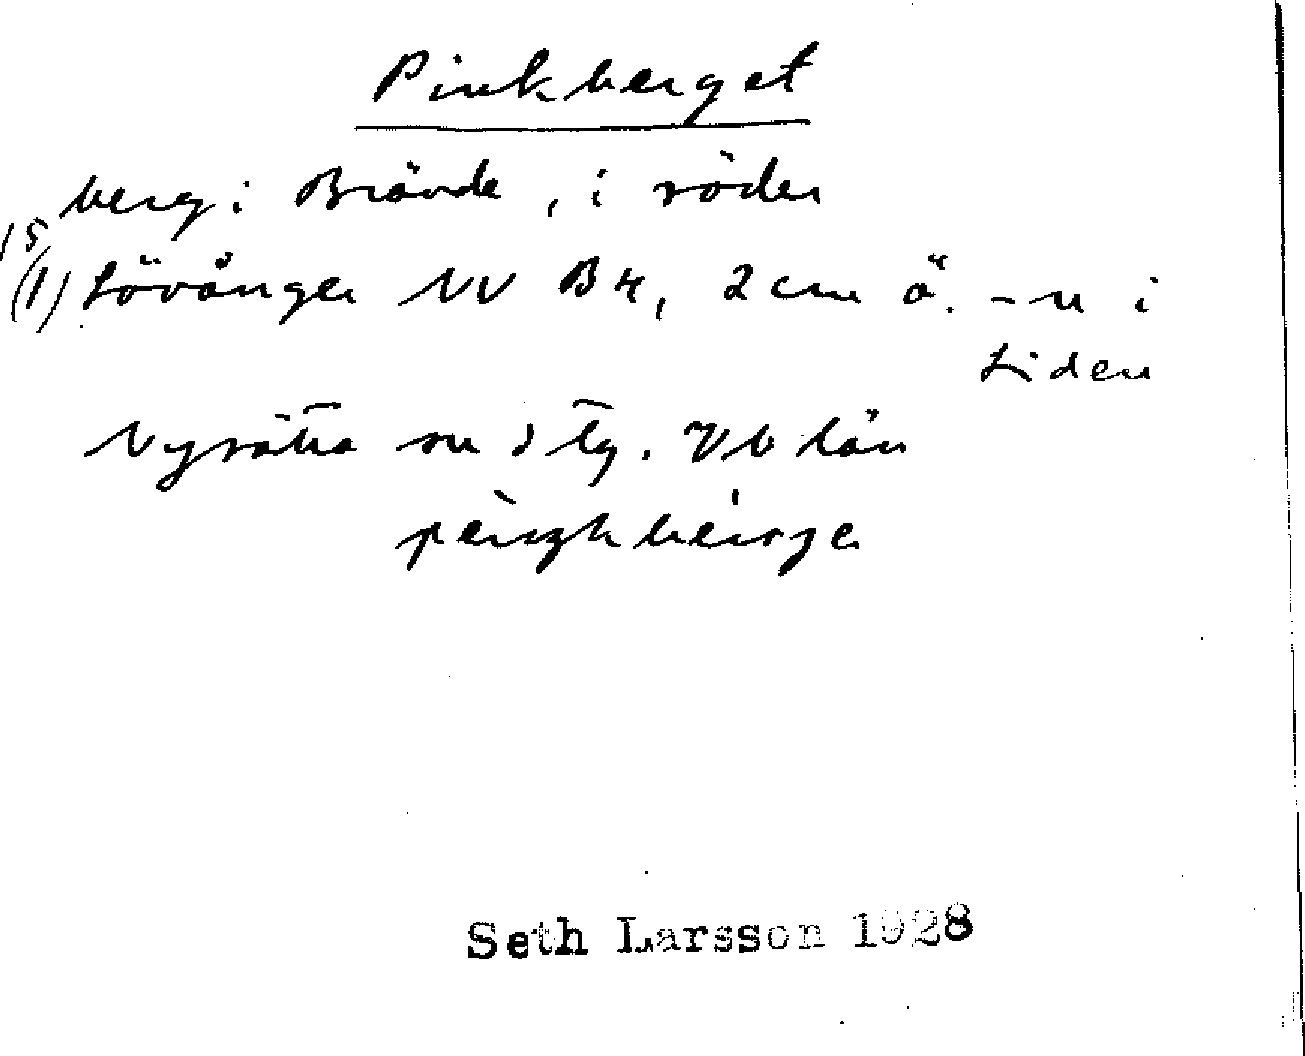 Pinkberget
berg i Brände, i söder
15
(1) Lövånger NV B4, 2 cm ö. -n i
Liden
Nysätra sn o tg. Vb län
Seth Larsson 1928